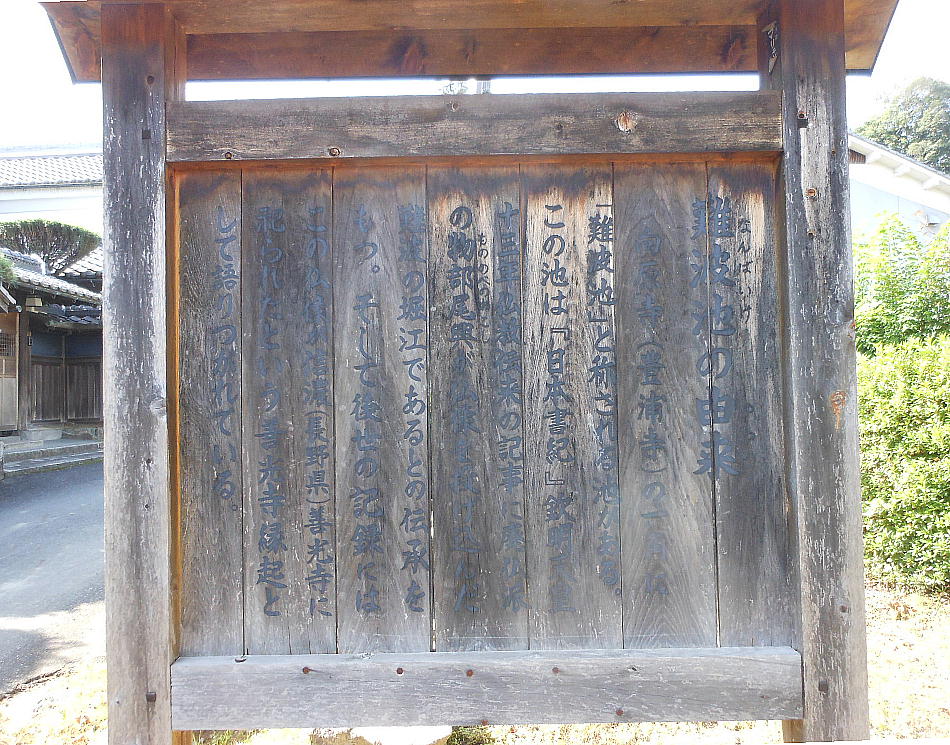 難波池の由来
なんば いけ
向原寺(豊浦寺)の一角に
「難波池」と称される池がある。
この池は『日本書紀』欽明天皇
十三年仏教伝来の記事に廃仏派
の物部尾輿が仏像を投げ込んだ
難波の堀江であるとの伝承を
もつ。そして後世の記録には
この仏像が信濃(長野県)善光寺に
祀られたという善光寺縁起と
して語りつがれている。